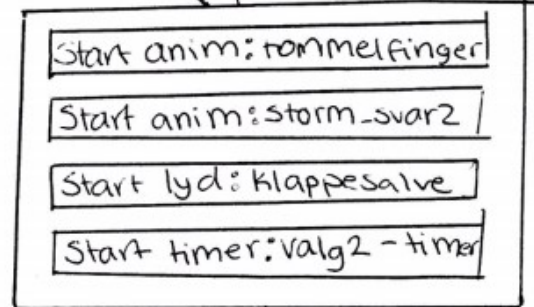 Start anim: tommelfinger
Start anim: storm_svar2
Start lyd: Klappesalve
Start timer: valg2-timer